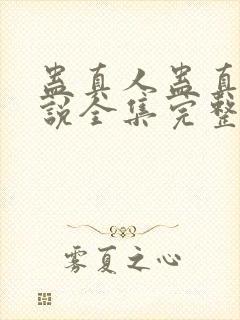 蛊真人蛊真
说全集完整
雾夏之心